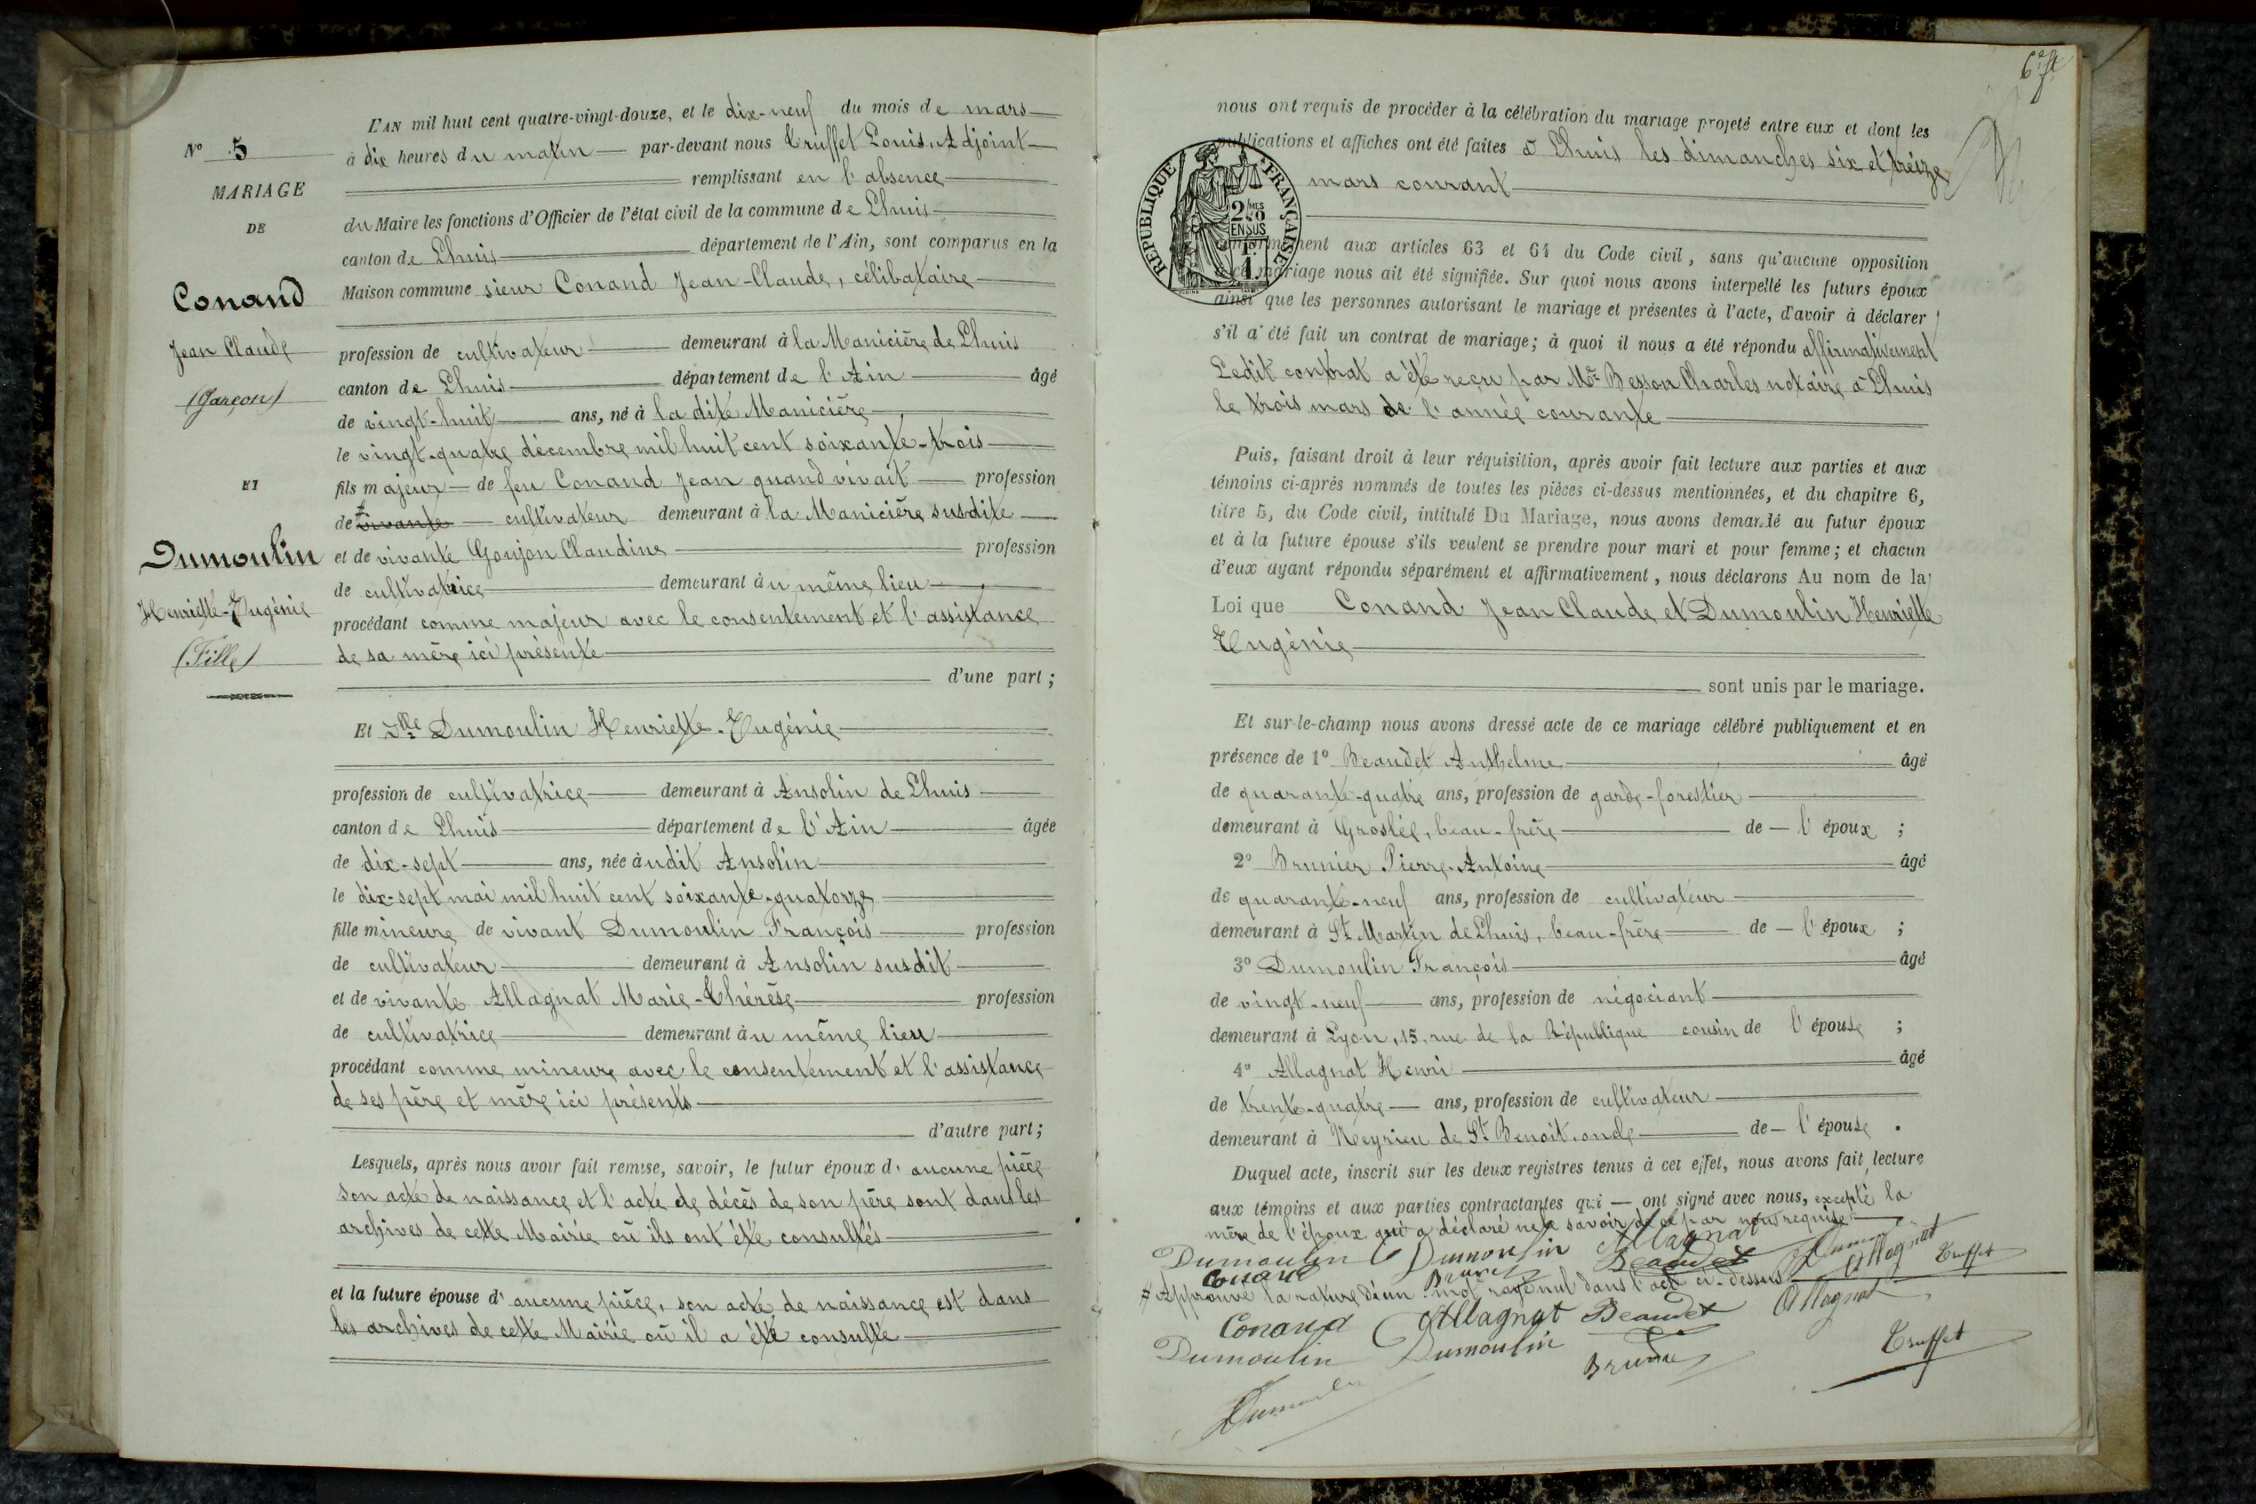 N° 5
MARIAGE
DE
Conand
Jean Claude
(Garçon)
ET
Dumoulin
Henriette-Eugénie
(Fille)
L'AN mil huit cent quatre-vingt-douze, et le dix-neuf du mois de mars
à dix heures du matin par-devant nous Truffet Louis, Adjoint
remplissant en l'absence
du Maire les fonctions d'Officier de l'état civil de la commune de Lhuis
canton de Lhuis département de l'Ain, sont comparus en la
Maison commune sieur Conand Jean-Claude, célibataire
profession de cultivateur demeurant à la Manicière de Lhuis
canton de Lhuis département de l'Ain âgé
de vingt-huit ans, né à la dite Manicière
le vingt-quatre décembre mil huit cent soixante-trois
fils majeur de feu Conand Jean quand vivait profession
de # vivante cultivateur demeurant à la Manicière susdite
et de vivante Goujon Claudine profession
de cultivatrice demeurant au même lieu
procédant comme majeur avec le consentement et l'assistance
de sa mère ici présente
d'une part ;
Et Dlle Dumoulin Henriette-Eugénie
profession de cultivatrice demeurant à Ansolin de Lhuis
canton de Lhuis département de l'Ain âgée
de dix-sept ans, née audit Ansolin
le dix-sept mai mil huit cent soixante-quatorze
fille mineure de vivant Dumoulin François profession
de cultivateur demeurant à Ansolin susdit
et de vivante Allagnat Marie-Thérèse profession
de cultivatrice demeurant au même lieu
procédant comme mineure avec le consentement et l'assistance
de ses père et mère ici présents
d'autre part ;
Lesquels, après nous avoir fait remise, savoir, le futur époux d'aucune pièce
son acte de naissance et l'acte de décès de son père sont dans les
archives de cette Mairie où ils ont été consultés
et la future épouse d'aucune pièce, son acte de naissance est dans
les archives de cette Mairie où il a été consulté
6e ft
nous ont requis de procéder à la célébration du mariage projeté entre eux et dont les
publications et affiches ont été faites à Lhuis les dimanches six et treize
mars courant
RÉPUBLIQUE FRANÇAISE
2/10MES
EN SUS
1F.
conformément aux articles 63 et 64 du Code civil, sans qu'aucune opposition
à ce mariage nous ait été signifiée. Sur quoi nous avons interpellé les futurs époux
ainsi que les personnes autorisant le mariage et présentes à l'acte, d'avoir à déclarer
s'il a été fait un contrat de mariage; à quoi il nous a été répondu affirmativement
Ledit contrat a été reçu par Me Besson Charles notaire à Lhuis
le trois mars de l'année courante
Puis, faisant droit à leur réquisition, après avoir fait lecture aux parties et aux
témoins ci-après nommés de toutes les pièces ci-dessus mentionnées, et du chapitre 6,
titre 5, du Code civil, intitulé Du Mariage, nous avons demandé au futur époux
et à la future épouse s'ils veulent se prendre pour mari et pour femme ; et chacun
d'eux ayant répondu séparément et affirmativement, nous déclarons Au nom de la
Loi que Conand Jean Claude et Dumoulin Henriette
Eugénie
sont unis par le mariage.
Et sur-le-champ nous avons dressé acte de ce mariage célébré publiquement et en
présence de 1° Beaudet Anthelme âgé
de quarante-quatre ans, profession de garde-forestier
demeurant à Groslée, beau-frère de l'époux ;
2° Brunier Pierre-Antoine âgé
de quarante-neuf ans, profession de cultivateur
demeurant à St Martin de Lhuis, beau-frère de l'époux ;
3° Dumoulin François âgé
de vingt-neuf ans, profession de négociant
demeurant à Lyon, 15, rue de la République cousin de l'épouse ;
4° Allagnat Henri âgé
de trente-quatre ans, profession de cultivateur
demeurant à Meyrieu de St Benoit, oncle de l'épouse.
Duquel acte, inscrit sur les deux registres tenus à cet effet, nous avons fait lecture
aux témoins et aux parties contractantes qui ont signé avec nous, excepté la
mère de l'époux qui a déclaré ne le savoir de ce par nous requise
Dumoulin Dumoulin Allagnat
Conand Beaudet Allagnat Truffet
# Approuvé la rature d'un mot rayé nul dans l'acte ci-dessus
Conand Allagnat Beaudet Allagnat
Dumoulin Dumoulin Truffet
Dumoulin